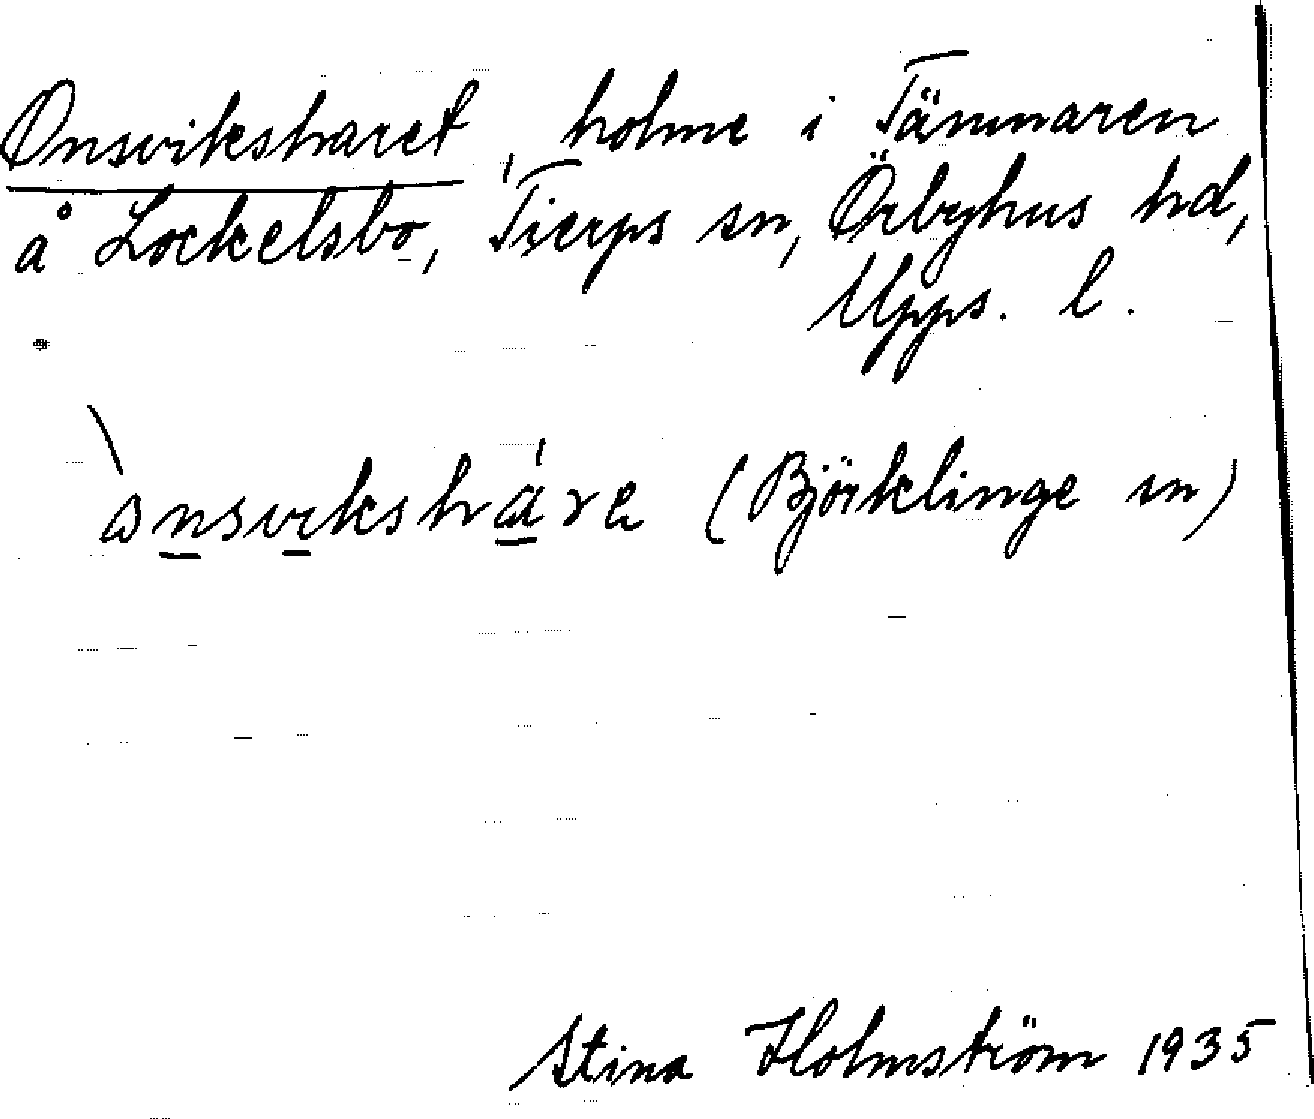 Onsviksharet, holme i Tämnaren
å Lockelsbo, Tierps sn, Örbyhus hd,
Upps. l.
ònsvikshάrɐ (Björklinge sn)
Stina Holmström 1935